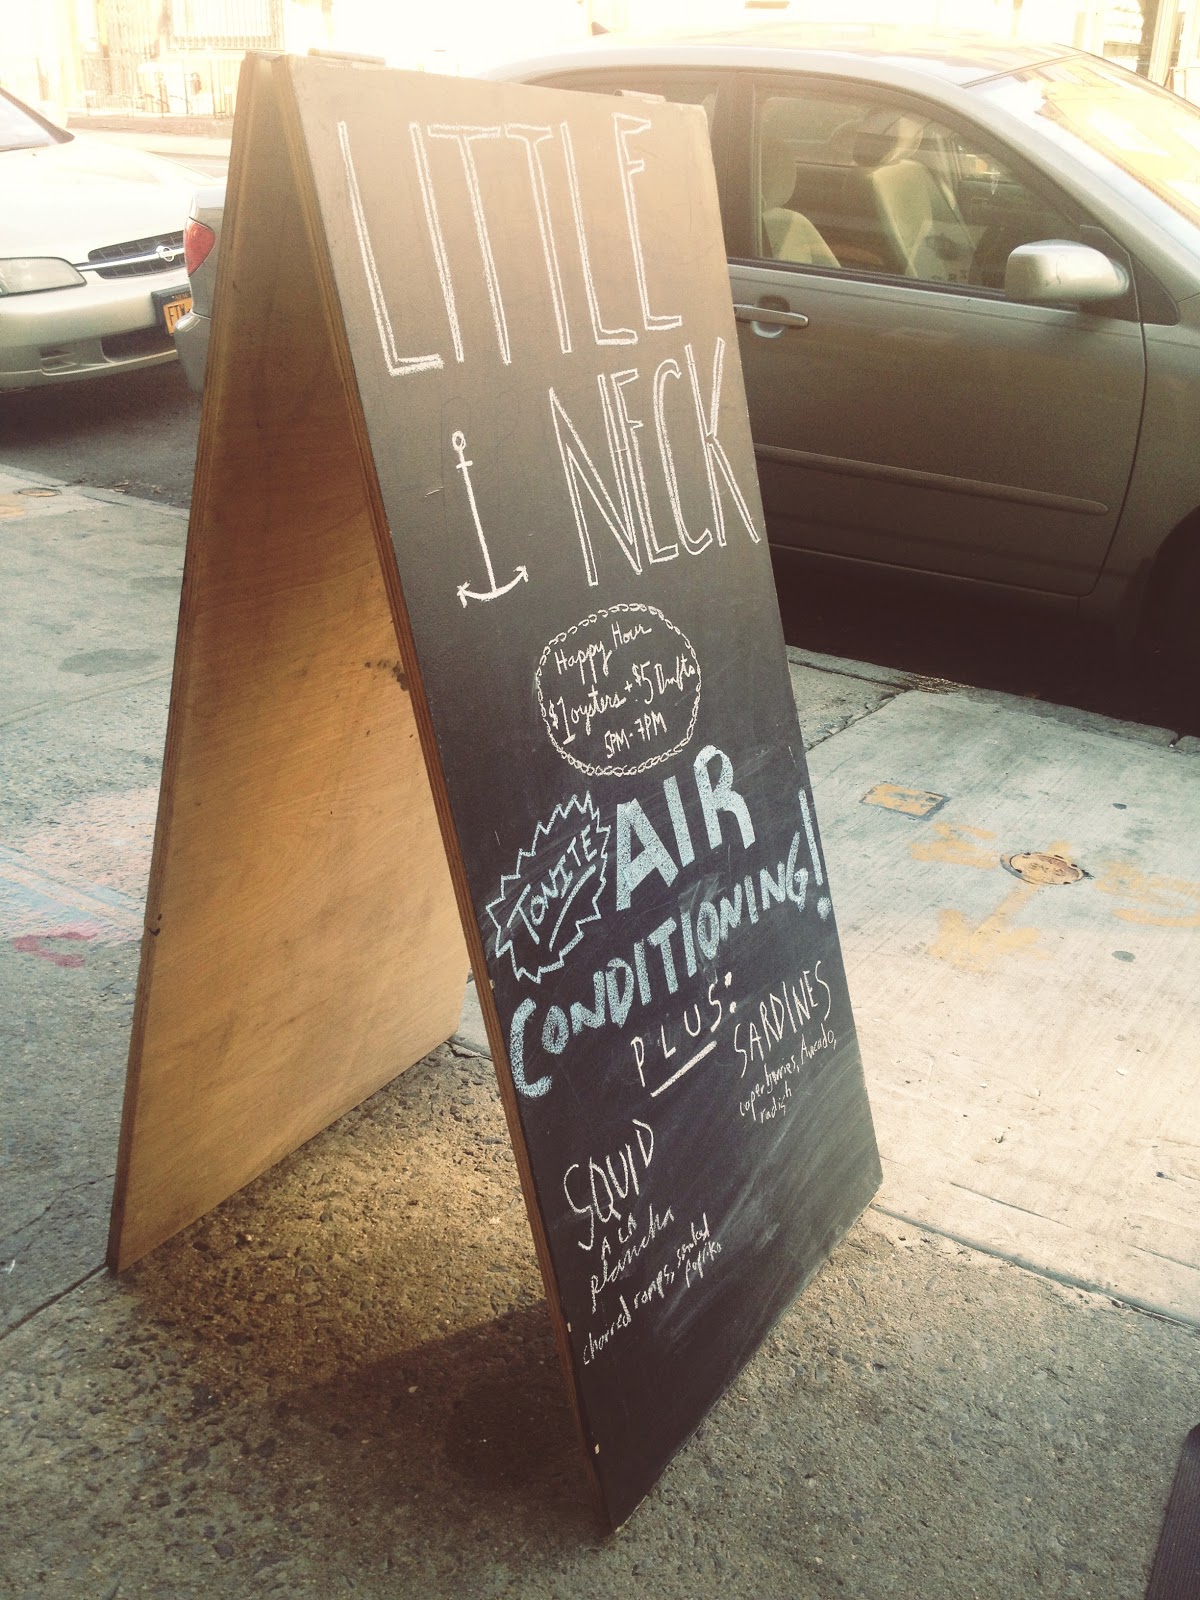 LITTLE
NECK
Happy Hour
$1 oysters + $5 Drafts
5PM-7PM
TONITE
AIR
CONDITIONING!
PLUS:
SARDINES
caperberries, Avocado,
radish
SQUID
A LA
plancha
charred ramps, smoked
paprika